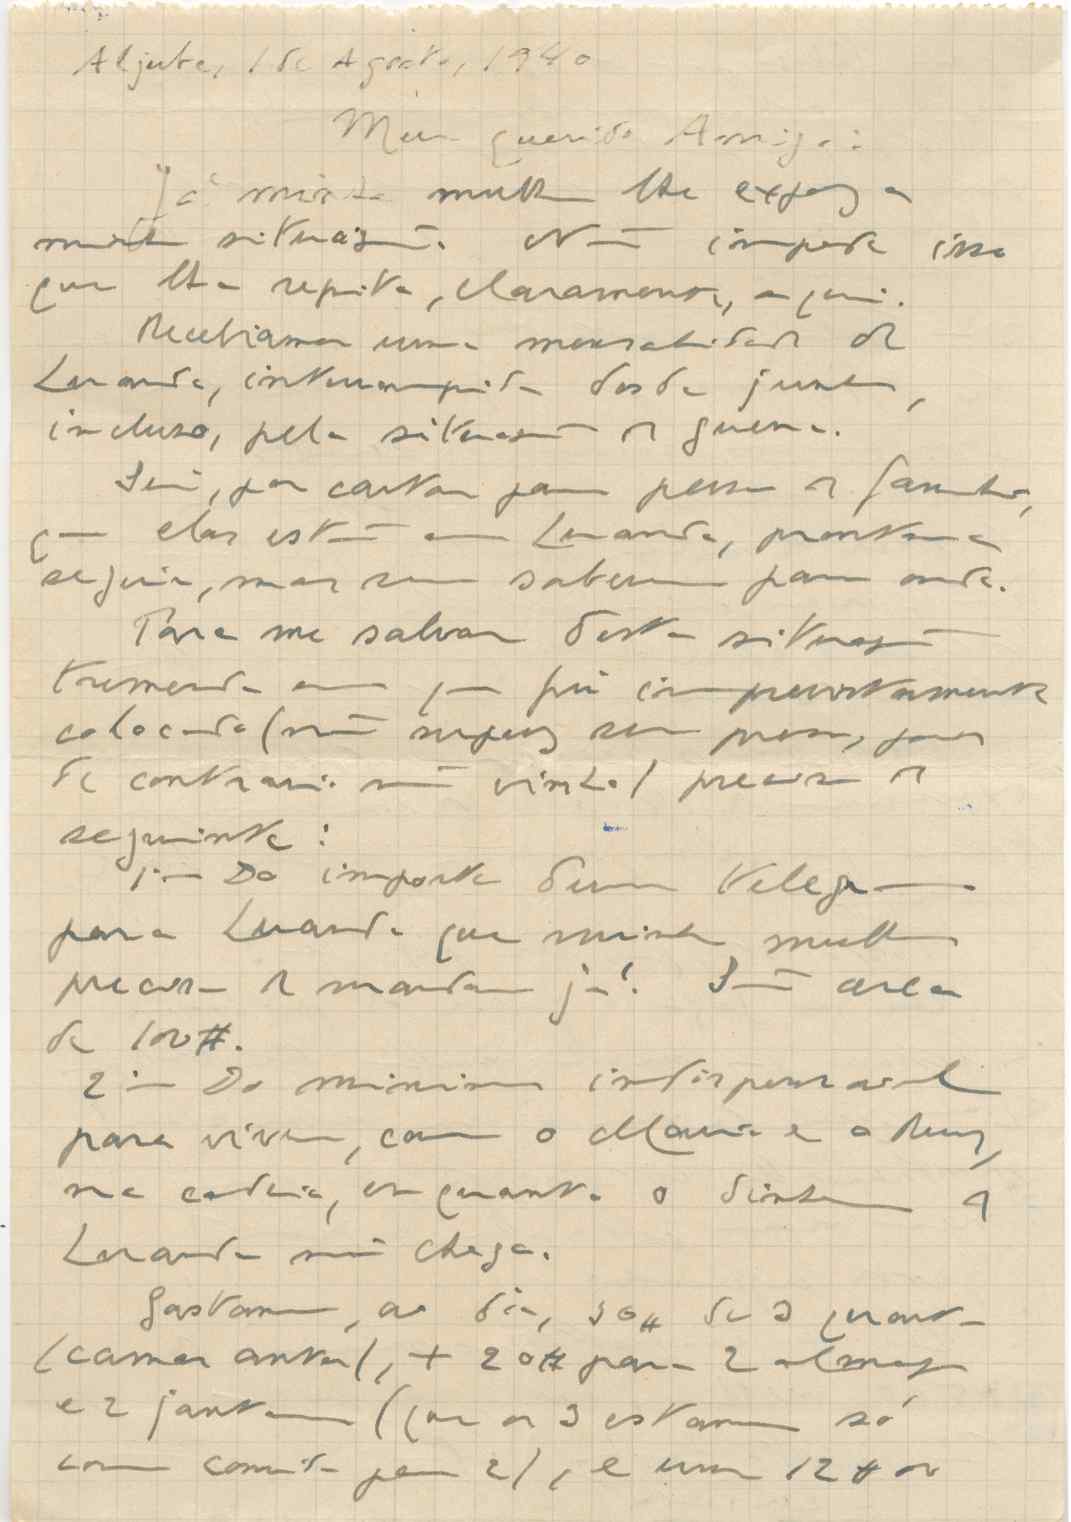 Aljube, 1 de Agosto, 1940
Meu querido Amigo:
Já minha mulher lhe expoz a
minha situação. Não impede isso
que lhe repita, claramente, aqui.
Recebiamos uma mensalidade de
Luanda, interrompida desde junho,
incluso, pela situação de guerra.
Sei, por cartas para pessoa de familia,
que elas estão em Luanda, prontas a
seguir, mas sem saberem para onde.
Para me salvar desta situação
tremenda em que fui imprevistamente
colocado (não supuz ser preso, pois
de contrario não vinha) preciso de
seguinte:
1º— Do importe dum telegrama
para Luanda que minha mulher
precisa de mandar já. São cerca
de 100$.
2º— Do minimo indispensavel
para viver, com o Mario e o Ruy,
na cadeia, enquanto o dinheiro de
Luanda não chega.
Gastamos, ao dia, 30$ de 3 quartos
(camas antes), + 20$ para 2 almoços
e 2 jantares (que os 3 estamos só
com comida para 2), e uns 12$ ou